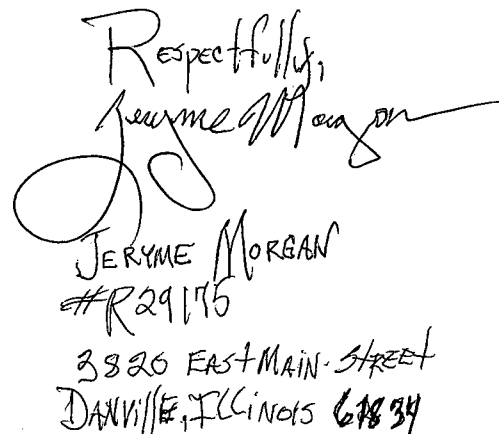 Respectfully,
Jeryme Morgan
JERYME MORGAN
#R29175
3820 EAST MAIN STREET
DANVILLE, ILLINOIS 61834